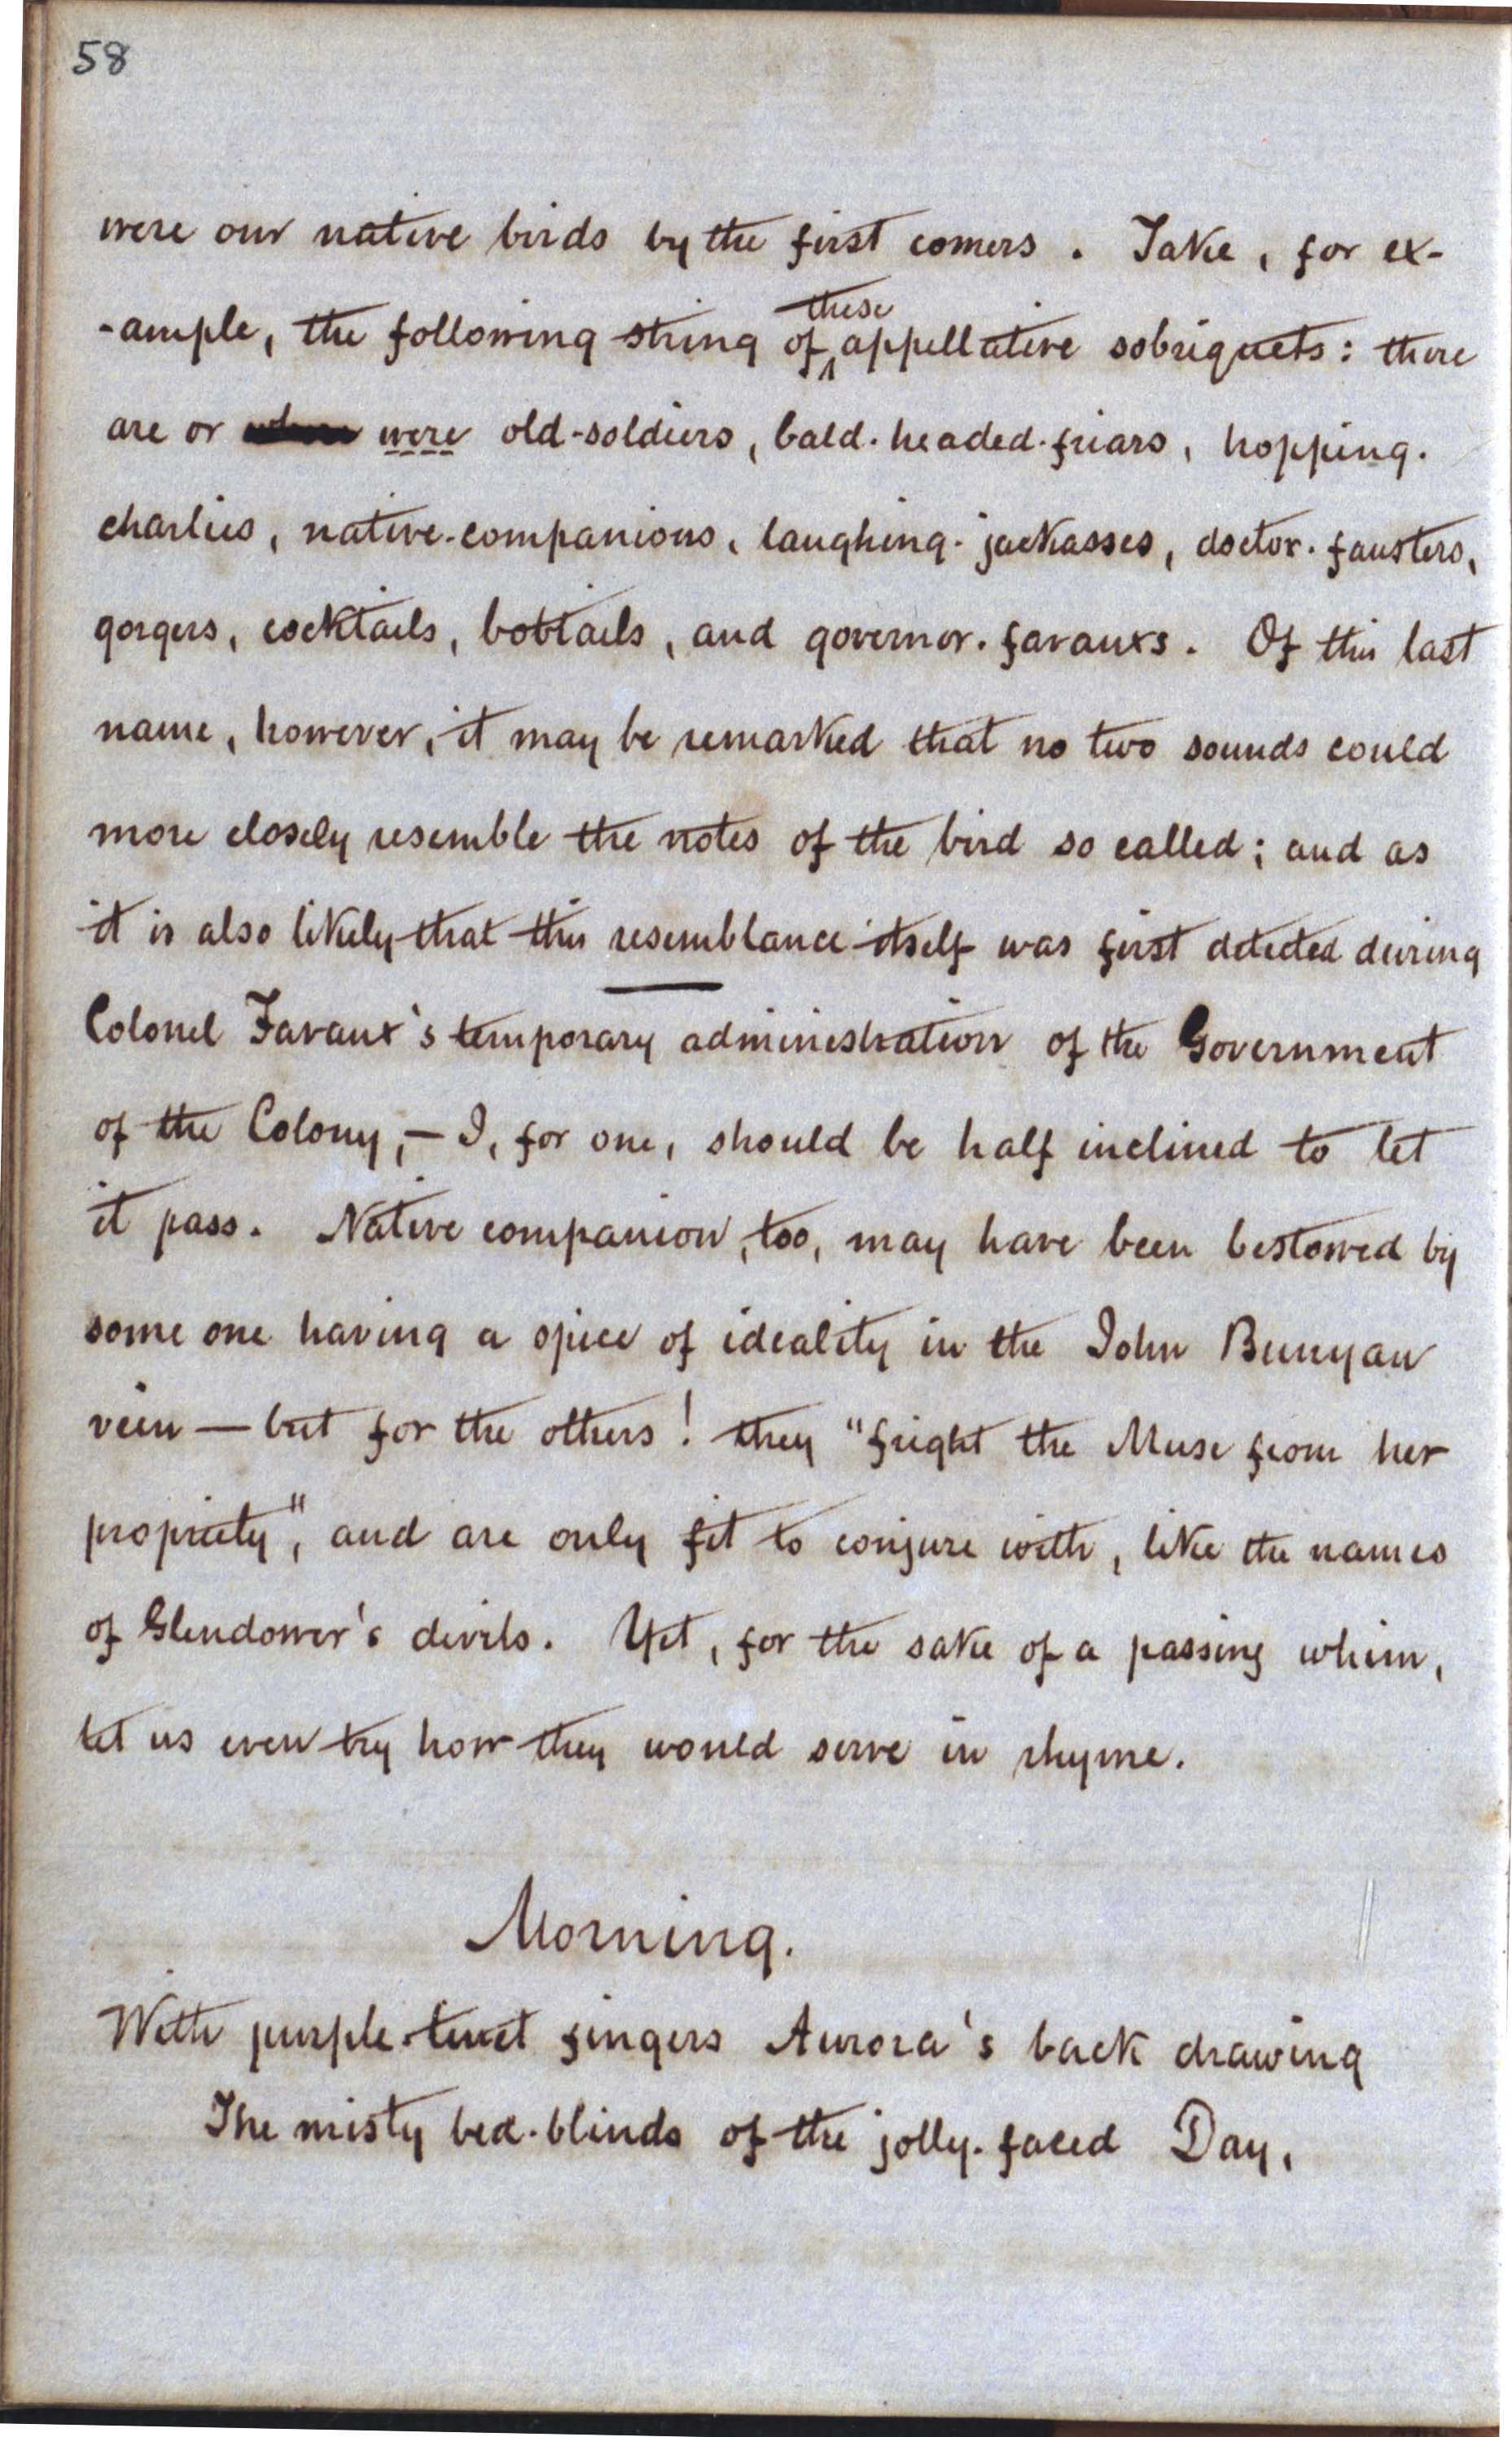 58
were our native birds by the first comers. Take, for ex-
-ample, the following string of these appellative sobriquets: there
are or were old-soldiers, bald-headed-friars, hopping-
charlies, native-companions, laughing-jackasses, doctor-fausters,
gorgers, cocktails, bobtails, and governor-favauxs. Of this last
name, however, it may be remarked that no two sounds could
more closely resemble the notes of the bird so called; and as
it is also likely that this resemblance itself was first detected during
Colonel Favaux's temporary administration of the Government
of the Colony,— I, for one, should be half inclined to let
it pass. Native companion, too, may have been bestowed by
some one having a spice of ideality in the John Bunyan
vein — but for the others! they "fright the Muse from her
propriety", and are only fit to conjure with, like the names
of Glendower's devils. Yet, for the sake of a passing whim,
let us even try how they would serve in rhyme.
Morning.
With purple-tinct fingers Aurora's back drawing
The misty bed-blinds of the jolly-faced Day,